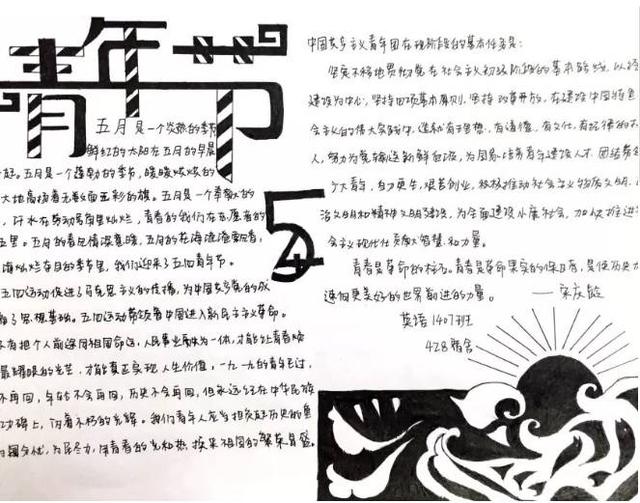 青年节
五月是一个炎热的季节
鲜红的太阳在五月的早晨
好。五月是一个蓬勃的季节,暖暖煦煦的
大地高扬着无数面五彩的旗。五月是一个奉献的
,汗水在劳动号角里灿烂,青春的我们在志愿者的
五里。五月的春风情深意暖,五月的花海浪漫
海灿烂夺目的季节里,我们迎来了五四青年节。
五四运动促进了马克思主义的传播,为中国共产党的成
了思想基础。五四运动带领着中国进入新民主主义革命。
有把个人前途同祖国命运,人民事业融为一体,才能让青春焕
最耀眼的光芒,才能真正实现人生价值,一九一九的青年已过,
不再回,年轮不会再回,历史不会再回,但永远记在中华民族
功碑上,闪着不朽的光辉。我们青年人应当担负起历史的重
为国分忧,为民尽力,用青春的光和热,换来祖国的繁荣昌盛。
54
中国共产主义青年团在现阶段的基本任务是:
坚定不移地贯彻党在社会主义初级阶段的基本路线,以经
建设为中心,坚持四项基本原则,坚持改革开放,在建设中国特色
会主义的伟大实践中,造就有理想,有道德,有文化,有纪律的
人,努力为党输送新鲜血液,为国家培养青年建设人才,团结带
广大青年,自力更生,艰苦创业,积极推动社会主义物质文明,
治文明和精神文明建设,为全面建设小康社会,加快推进
会主义现代化贡献智慧和力量。
青春是革命的标志。青春是革命果实的保卫者,是使历史
速向更美好的世界前进的力量。 ——宋庆龄
英语1407班
428宿舍